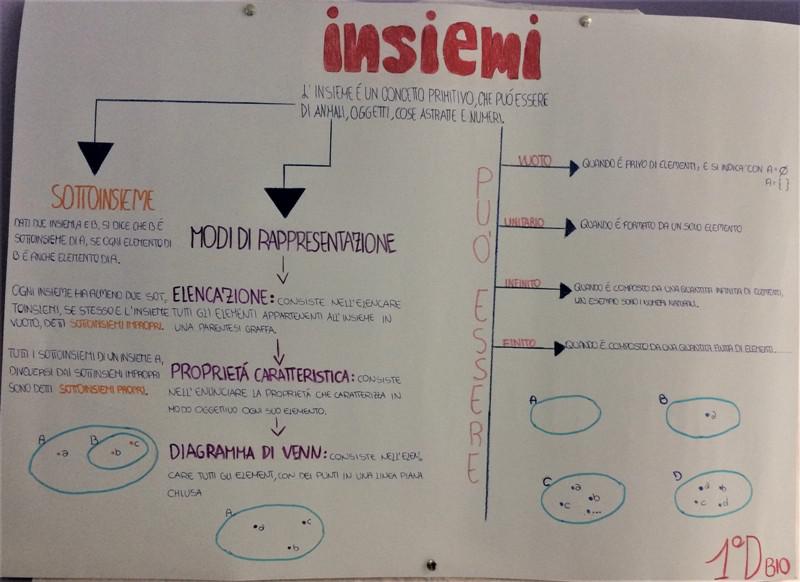 insiemi
L'INSIEME É UN CONCETTO PRIMITIVO, CHE PUÓ ESSERE
DI ANIMALI, OGGETTI, COSE ASTRATTE E NUMERI.
SOTTOINSIEME
DATI DUE INSIEMI A E B, SI DICE CHE B É
SOTTOINSIEME DI A, SE OGNI ELEMENTO DI
B É ANCHE ELEMENTO DI A.
OGNI INSIEME HA ALMENO DUE SOT,
TOINSIEMI, SE STESSO E L'INSIEME
VUOTO, DETTI SOTTOINSIEMI IMPROPRI.
TUTTI I SOTTOINSIEMI DI UN INSIEME A,
DIVERSI DAI SOTTOINSIEMI IMPROPRI
SONO DETTI SOTTOINSIEMI PROPRI.
A
B
a
b
c
MODI DI RAPPRESENTAZIONE
ELENCAZIONE: CONSISTE NELL'ELENCARE
TUTTI GLI ELEMENTI APPARTENENTI ALL'INSIEME IN
UNA PARENTESI GRAFFA.
PROPRIETÁ CARATTERISTICA: CONSISTE
NELL'ENUNCIARE LA PROPRIETÀ CHE CARATTERIZZA IN
MODO OGGETTIVO OGNI SUO ELEMENTO.
DIAGRAMMA DI VENN: CONSISTE NELL'ELEN,
CARE TUTTI GLI ELEMENTI, CON DEI PUNTI IN UNA LINEA PIANA
CHIUSA
A
a
c
b
PUO' ESSERE
VUOTO
QUANDO É PRIVO DI ELEMENTI, E SI INDICA CON A=Ø
A={ }
UNITARIO
QUANDO É FORMATO DA UN SOLO ELEMENTO
INFINITO
QUANDO É COMPOSTO DA UNA QUANTITÀ INFINITA DI ELEMENTI,
UN ESEMPIO SONO I NUMERI NATURALI.
FINITO
QUANDO É COMPOSTO DA UNA QUANTITÁ FINITA DI ELEMENTI.
A
B
a
C
a
b
c
...
D
a
b
c
d
1°D BIO